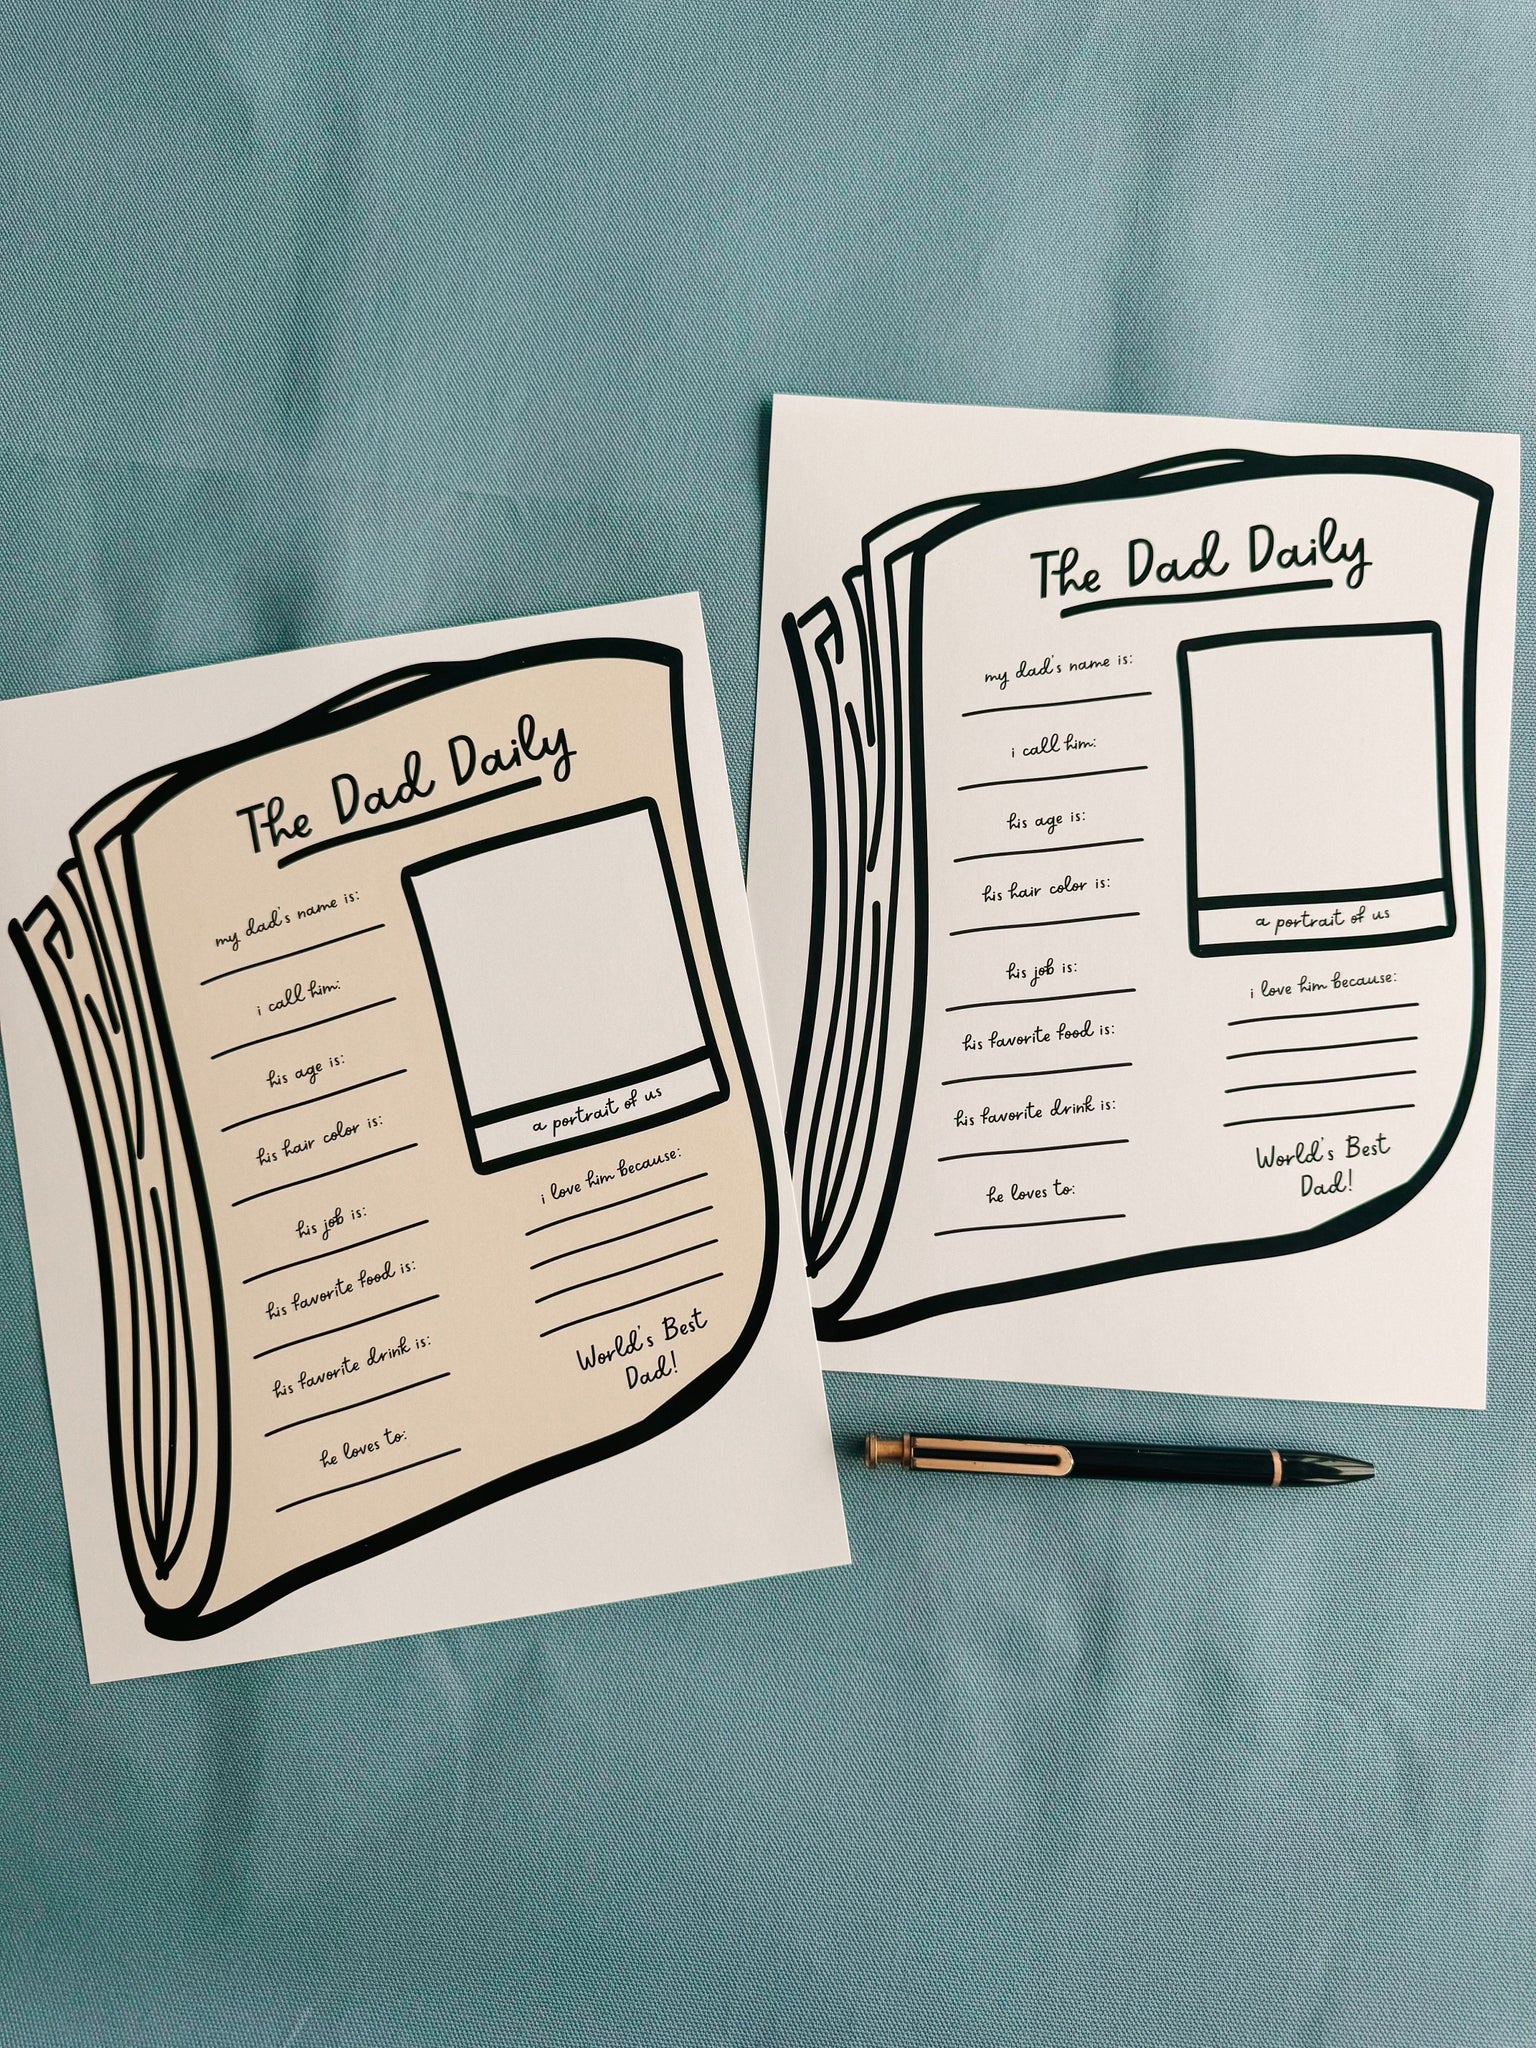 The Dad Daily
my dad's name is:
i call him:
his age is:
his hair color is:
his job is:
his favorite food is:
his favorite drink is:
he loves to:
a portrait of us
i love him because:
World's Best
Dad!
The Dad Daily
my dad's name is:
i call him:
his age is:
his hair color is:
his job is:
his favorite food is:
his favorite drink is:
he loves to:
a portrait of us
i love him because:
World's Best
Dad!